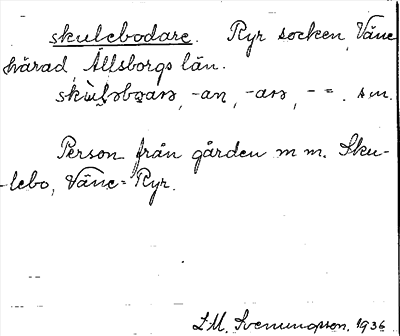 skulebodare. Ryr socken, Väne
härad, Älfsborgs län.
-an, -arə, - =. s m.
Person från gården m m. Sku-
lebo, Väne-Ryr.
L M. Svenungsson, 1936